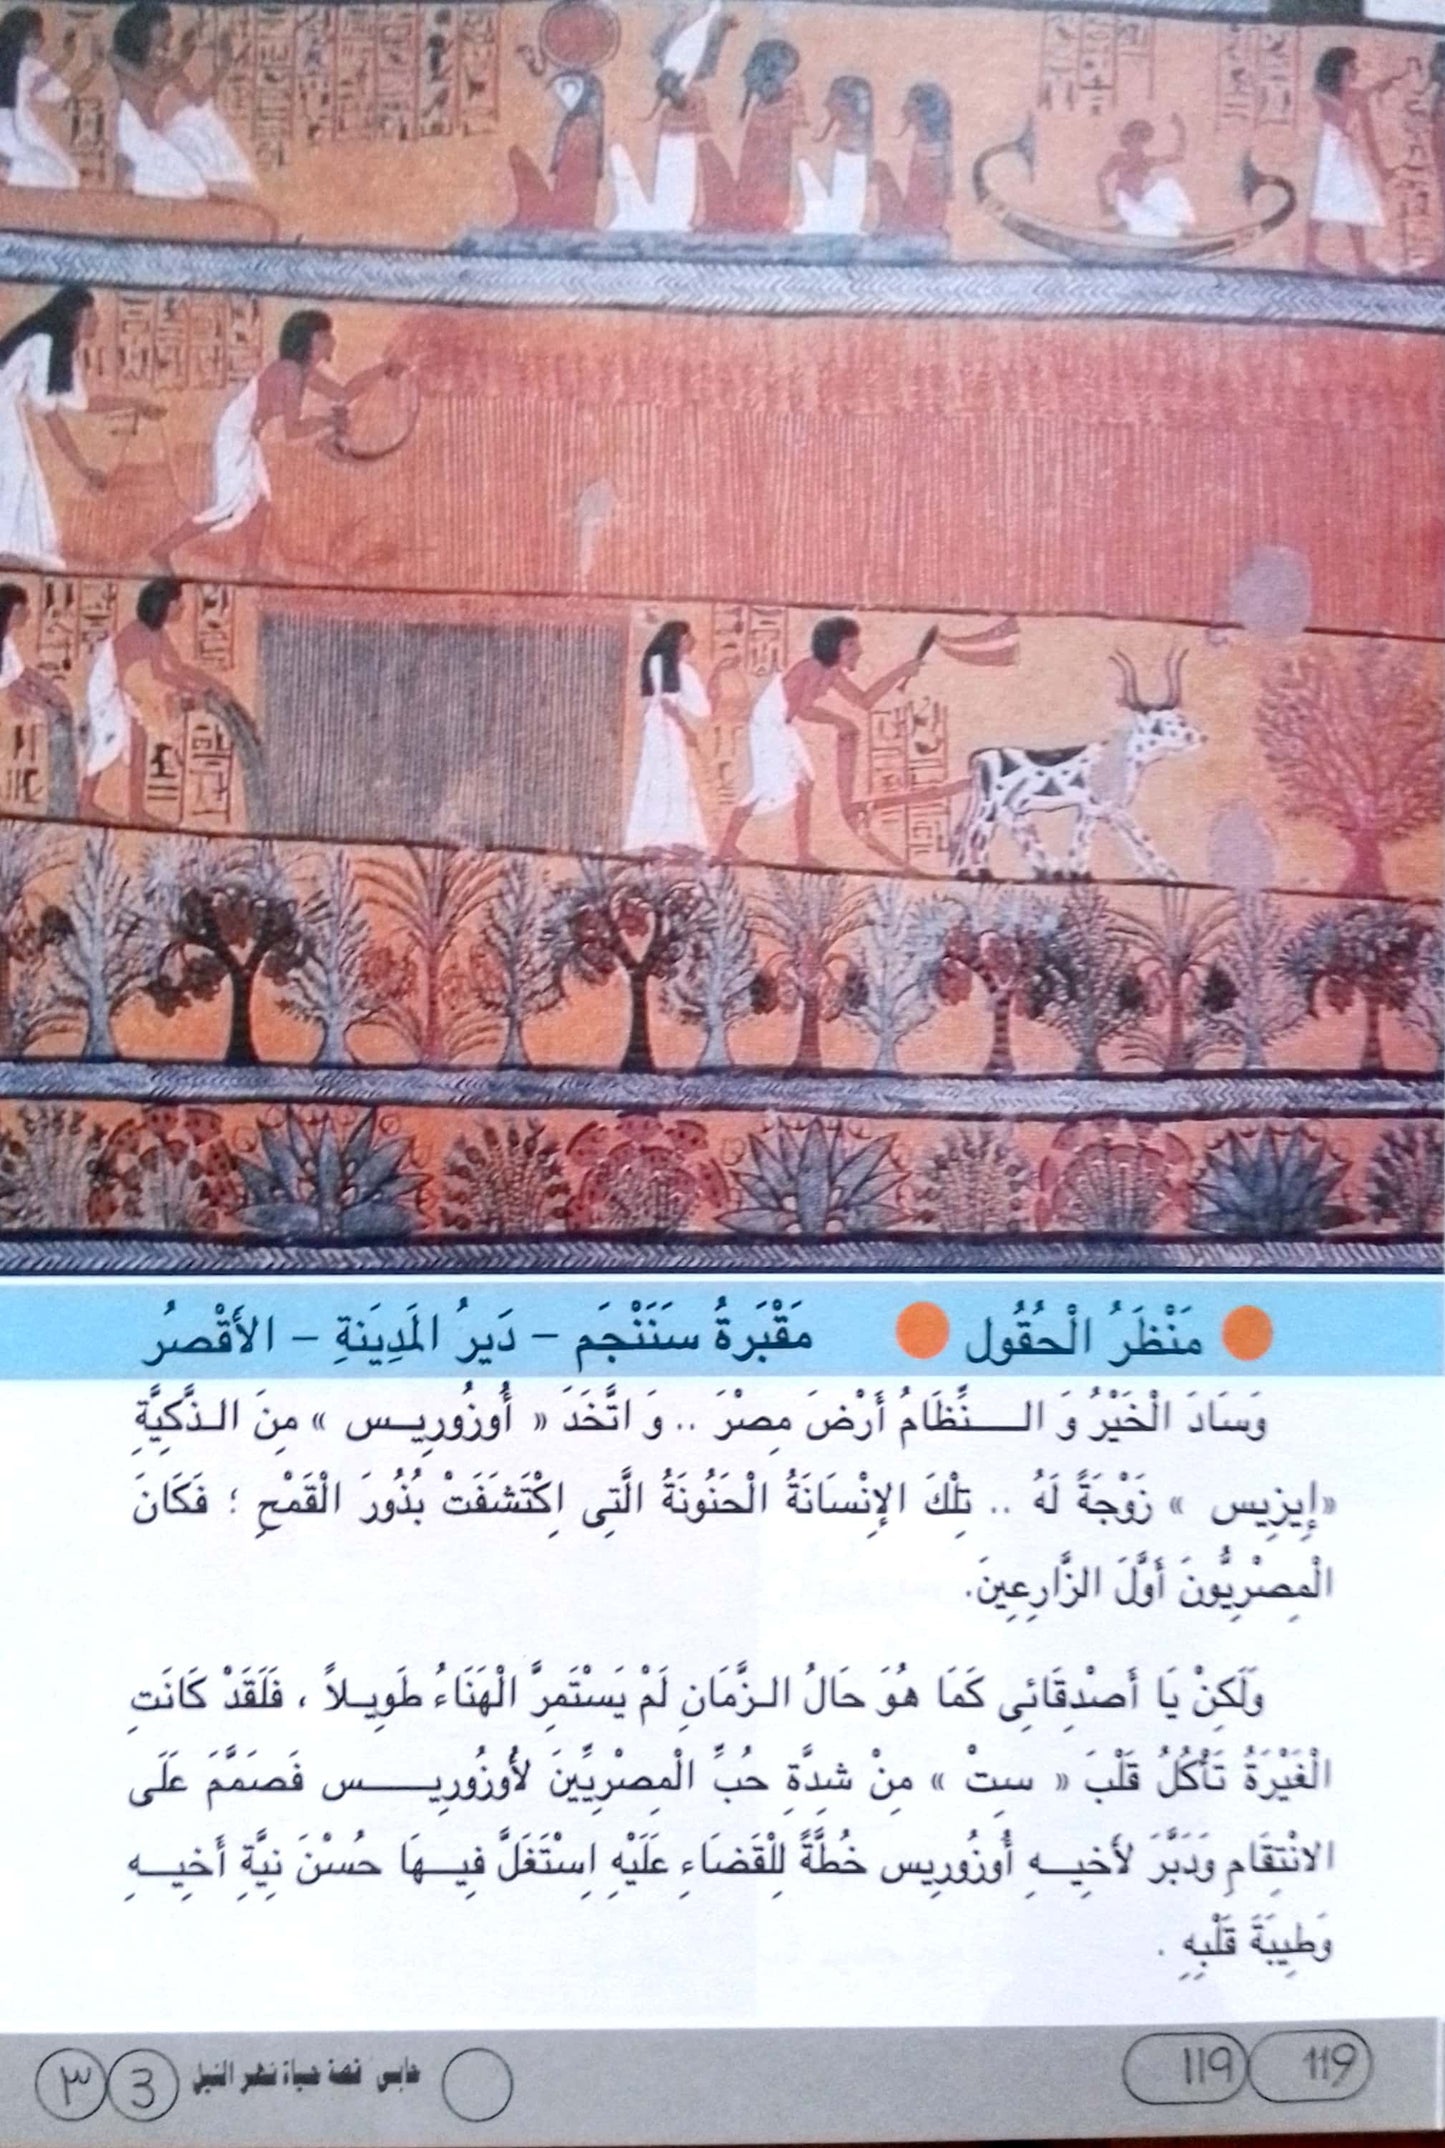 مَنْظَرُ الْحُقُول ● مَقْبَرةُ سَنَنْجَم – دَيرُ المَدِينَةِ – الأَقْصرُ
وَسَادَ الْخَيْرُ وَ الـنِّظَامُ أَرْضَ مِصْرَ .. وَ اتَّخَذَ « أُوزُورِيس » مِنَ الذَّكِيَّةِ
«إِيزِيس » زَوْجَةً لَهُ .. تِلْكَ الإِنْسَانَةُ الْحَنُونَةُ الَّتِى اِكْتَشَفَتْ بُذُورَ الْقَمْحِ ؛ فَكَانَ
الْمِصْرِيُّونَ أَوَّلَ الزَّارِعِينَ.
وَلَكِنْ يَا أَصْدِقَائِى كَمَا هُوَ حَالُ الزَّمَانِ لَمْ يَسْتَمِرَّ الْهَنَاءُ طَوِيلاً ، فَلَقَدْ كَانَتِ
الْغَيْرَةُ تَأْكُلُ قَلْبَ « سِتْ » مِنْ شِدَّةِ حُبِّ الْمِصْرِيِّينَ لأُوزُورِيس فَصَمَّمَ عَلَى
الانْتِقَامِ وَدَبَّرَ لأَخِيهِ أُوزُورِيس خُطَّةً لِلْقَضَاءِ عَلَيْهِ اِسْتَغَلَّ فِيهَا حُسْنَ نِيَّةِ أَخِيهِ
وَطِيبَةَ قَلْبِهِ .
119 119 حابى قصة حياة نهر النيل 3 ٣